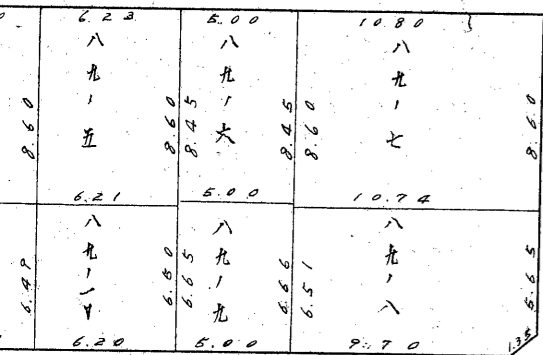 6.23
八九ノ五
8.60
8.60
6.21
5.00
八九ノ六
8.45
8.45
5.00
10.80
八九ノ七
8.60
8.60
10.74
八九ノ一
6.49
6.50
6.20
八九ノ九
6.65
6.66
5.00
八九ノ八
6.51
5.65
9.70
1.35